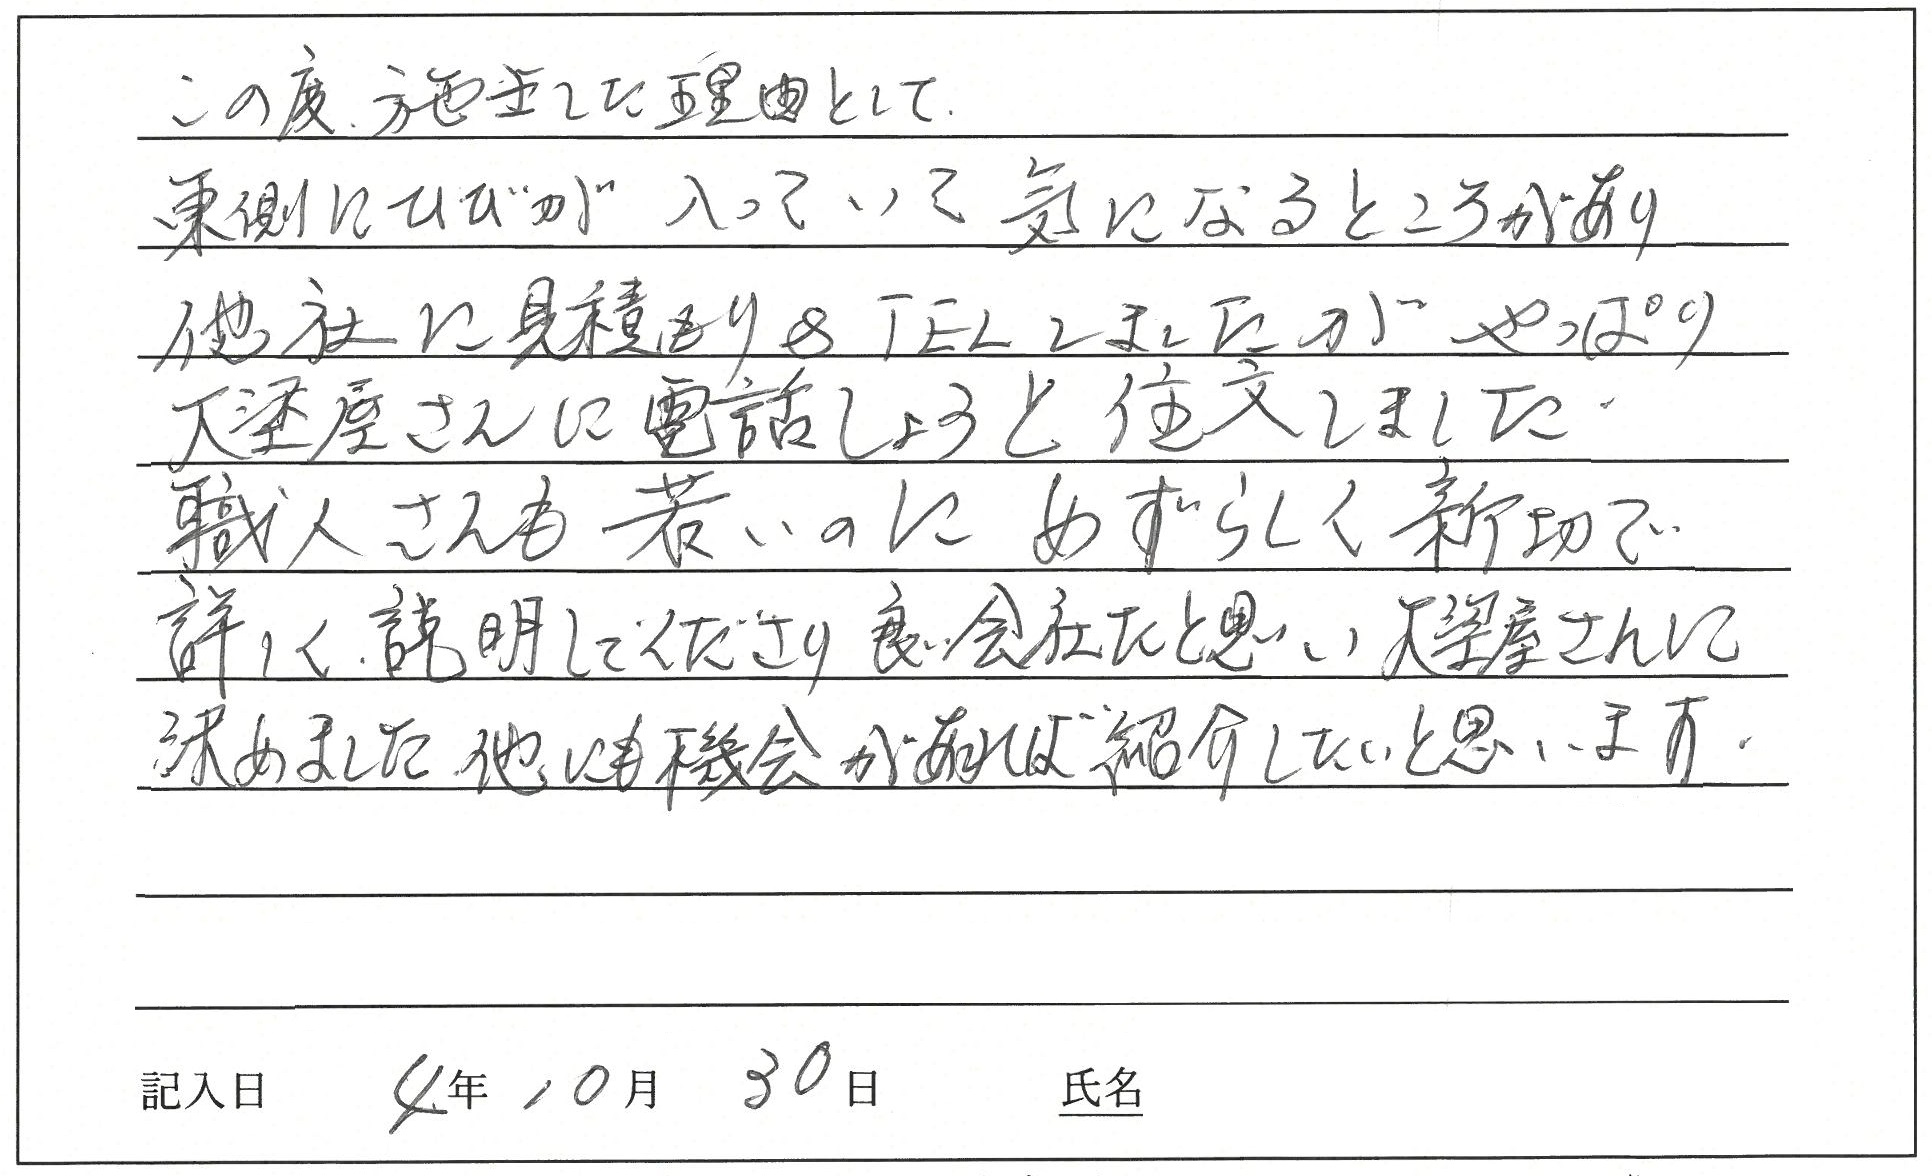 この度、施工した理由として、
東側にひびが入っていて気になるところがあり
他社に見積もり&TELしましたがやっぱり
大塗屋さんに電話しようと注文しました。
職人さんも若いのにめずらしく親切で
詳しく説明してくださり良い会社だと思い大塗屋さんに
決めました。他にも機会があれば紹介したいと思います。
記入日 4年 10月 30日 氏名